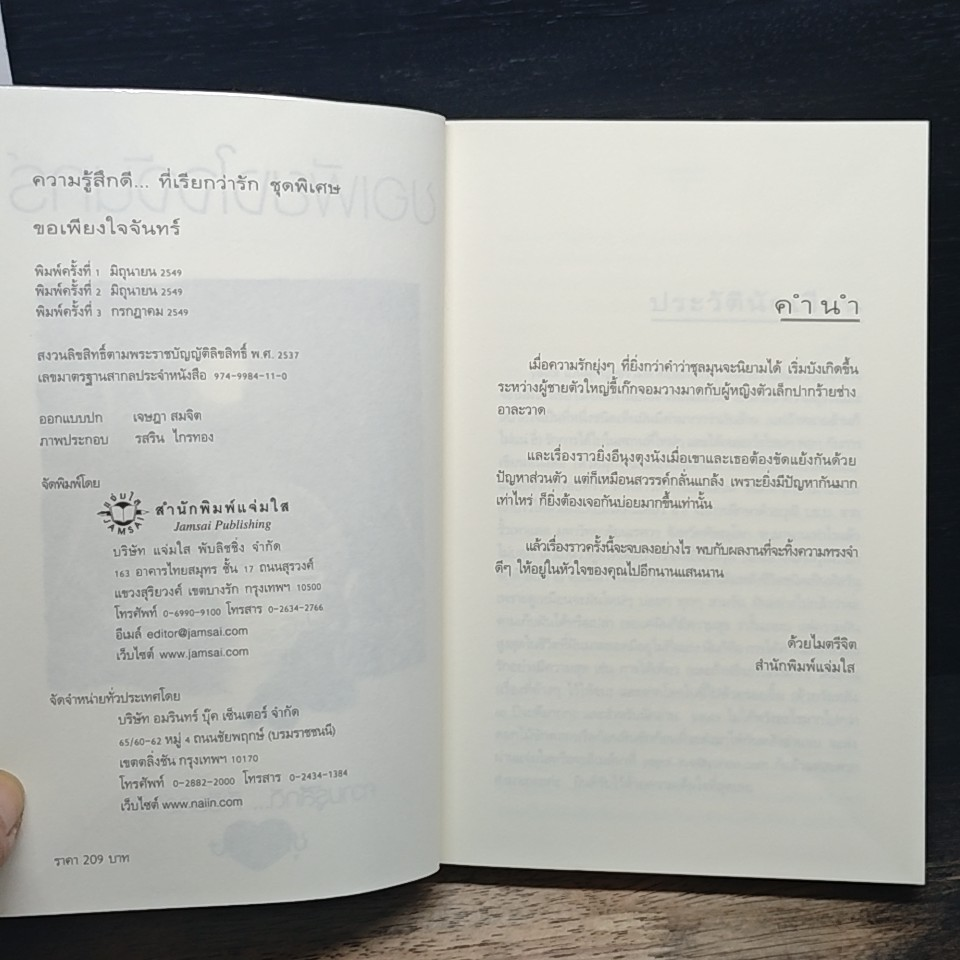 ความรู้สึกดี... ที่เรียกว่ารัก ชุดพิเศษ
ขอเพียงใจจันทร์
พิมพ์ครั้งที่ 1 มิถุนายน 2549
พิมพ์ครั้งที่ 2 มิถุนายน 2549
พิมพ์ครั้งที่ 3 กรกฎาคม 2549
สงวนลิขสิทธิ์ตามพระราชบัญญัติลิขสิทธิ์ พ.ศ. 2537
เลขมาตรฐานสากลประจำหนังสือ 974-9984-11-0
ออกแบบปก เจษฎา สมจิต
ภาพประกอบ รสริน ไกรทอง
จัดพิมพ์โดย
แจ่มใส JAMSAI
สำนักพิมพ์แจ่มใส
Jamsai Publishing
บริษัท แจ่มใส พับลิชชิ่ง จำกัด
163 อาคารไทยสมุทร ชั้น 17 ถนนสุรวงศ์
แขวงสุริยวงศ์ เขตบางรัก กรุงเทพฯ 10500
โทรศัพท์ 0-6990-9100 โทรสาร 0-2634-2766
อีเมล์ editor@jamsai.com
เว็บไซต์ www.jamsai.com
จัดจำหน่ายทั่วประเทศโดย
บริษัท อมรินทร์ บุ๊ค เซ็นเตอร์ จำกัด
65/60-62 หมู่ 4 ถนนชัยพฤกษ์ (บรมราชชนนี)
เขตตลิ่งชัน กรุงเทพฯ 10170
โทรศัพท์ 0-2882-2000 โทรสาร 0-2434-1384
เว็บไซต์ www.naiin.com
ราคา 209 บาท
คำนำ
เมื่อความรักยุ่งๆ ที่ยิ่งกว่าคำว่าชุลมุนจะนิยามได้ เริ่มบังเกิดขึ้น
ระหว่างผู้ชายตัวใหญ่ขี้เก๊กจอมวางมาดกับผู้หญิงตัวเล็กปากร้ายช่าง
อาละวาด
และเรื่องราวยิ่งอีนุงตุงนังเมื่อเขาและเธอต้องขัดแย้งกันด้วย
ปัญหาส่วนตัว แต่ก็เหมือนสวรรค์กลั่นแกล้ง เพราะยิ่งมีปัญหากันมาก
เท่าไหร่ ก็ยิ่งต้องเจอกันบ่อยมากขึ้นเท่านั้น
แล้วเรื่องราวครั้งนี้จะจบลงอย่างไร พบกับผลงานที่จะทิ้งความทรงจำ
ดีๆ ให้อยู่ในหัวใจของคุณไปอีกนานแสนนาน
ด้วยไมตรีจิต
สำนักพิมพ์แจ่มใส